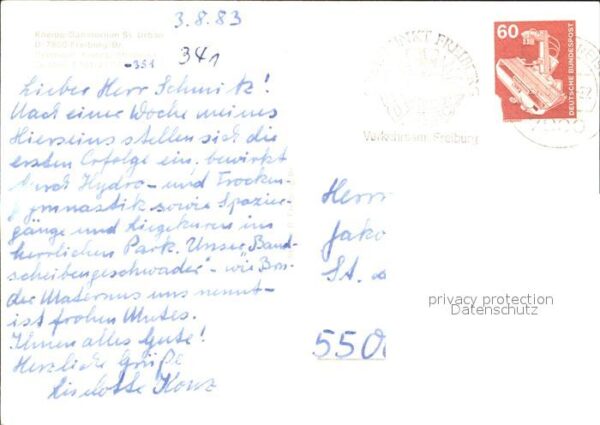 3.8.83
Kneipp-Sanatorium St. Urban
D-7800 Freiburg/Br.
341
Lieber Herr Schmitz!
Nach einer Woche meines
Hierseins stellen sich die
ersten Erfolge ein, bewirkt
durch Hydro- und Trocken-
gymnastik sowie Spazier-
gänge und Liegekuren im
herrlichen Park. Unser „Band-
scheibengeschwader" - wie Bru-
der Maternus uns nennt -
ist frohen Mutes.
Ihnen alles Gute!
Herzliche Grüße
Liselotte Konz
FREIBURG
Verkehrsamt Freiburg
60
DEUTSCHE BUNDESPOST
Herrn
Jako
St.
550
privacy protection
Datenschutz